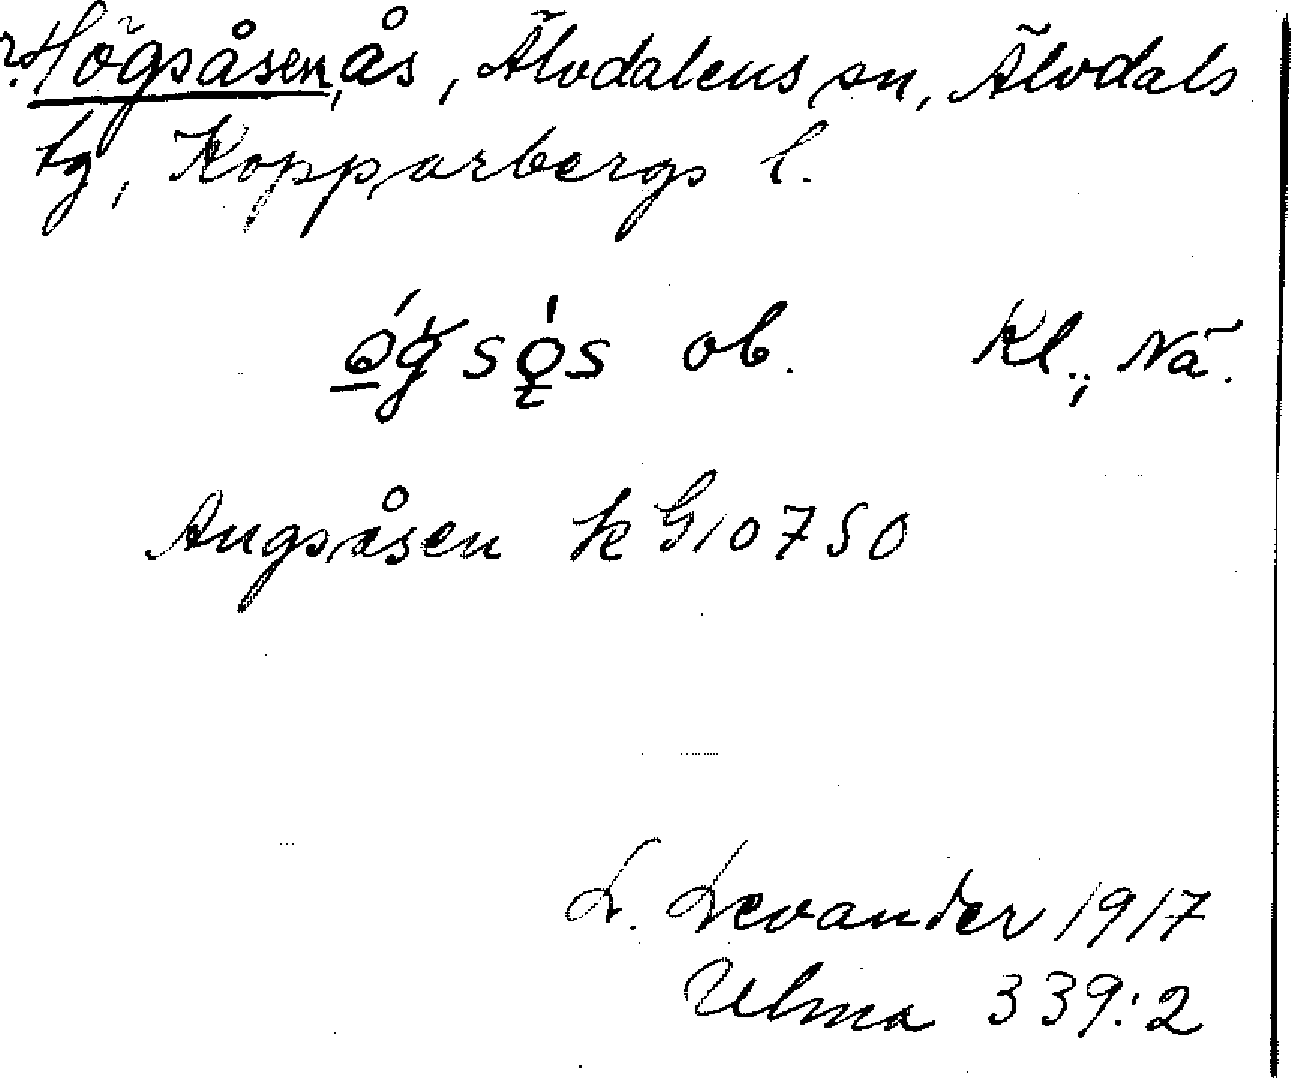 ?Högsåsen, ås, Älvdalens sn, Älvdals
tg, Kopparbergs l.
ǿgsǫ́s ob. Kl., Nä.
Augsåsen k G10750
L. Levander 1917
Ulma 339:2